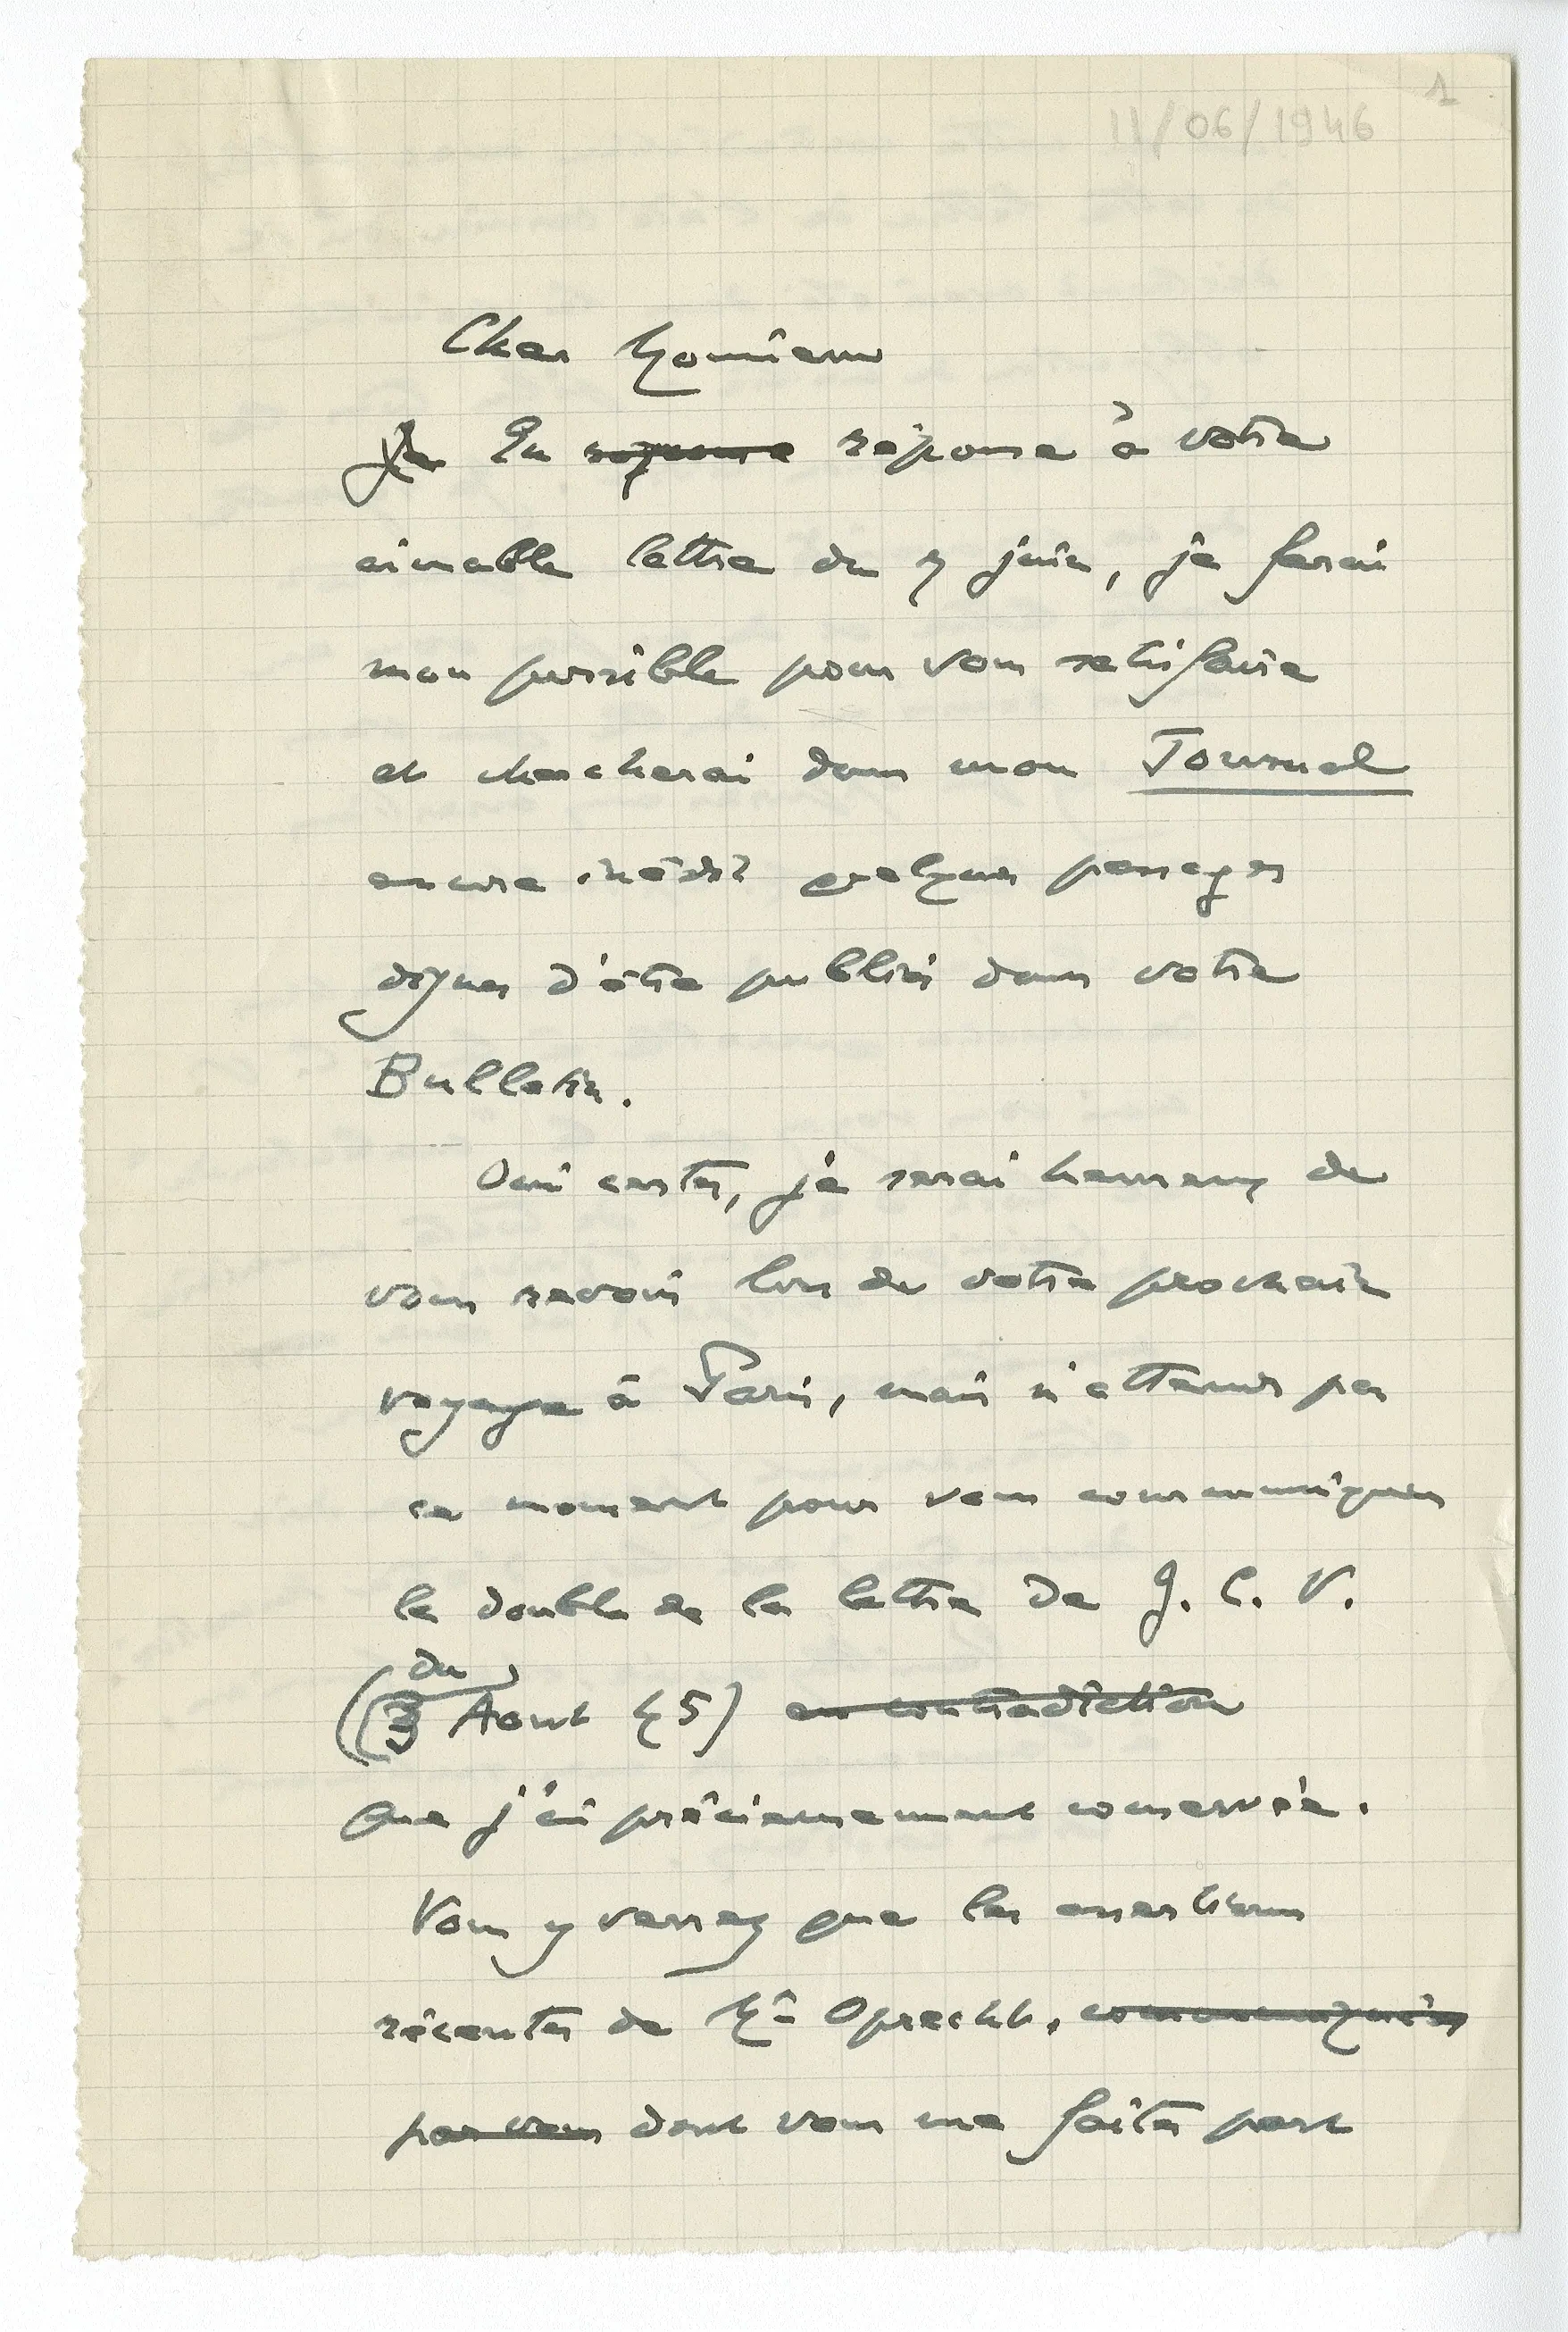 1
11/06/1946
Cher Monsieur
Je En reponse réponse à votre
aimable lettre du 7 juin, je ferai
mon possible pour vous satisfaire
et chercherai dans mon Journal
encore inédit quelques passages
dignes d'être publiés dans votre
Bulletin.
Oui certes, je serai heureux de
vous revoir lors de votre prochain
voyage à Paris, mais n'attends pas
ce moment pour vous communiquer
le double de la lettre de J. C. V.
du
(3 Aout 45) en contradiction
que j'ai précieusement conservée.
Vous y verrez que les assertions
récentes de Mr Oprecht, communiquées
par vous dont vous me faites part